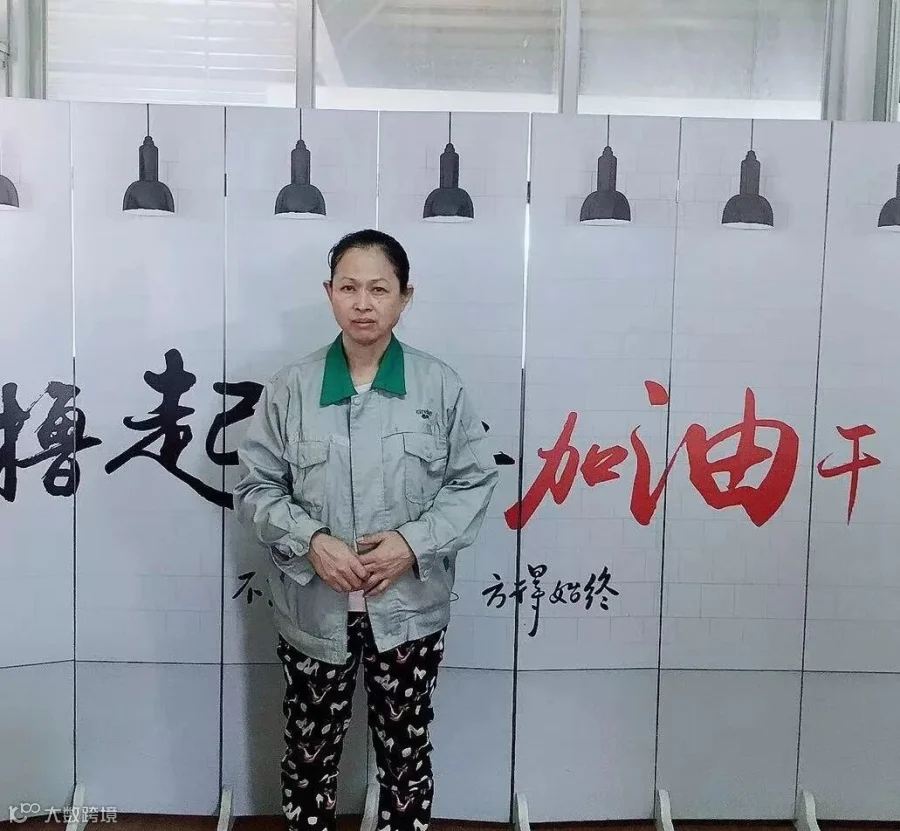 撸起 加油干
不 方得始终
大数跨境